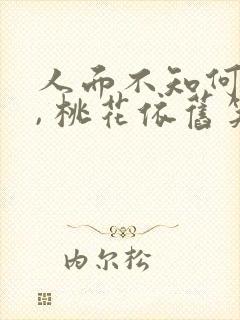 人而不知何
,桃花依舊笑
内尔松